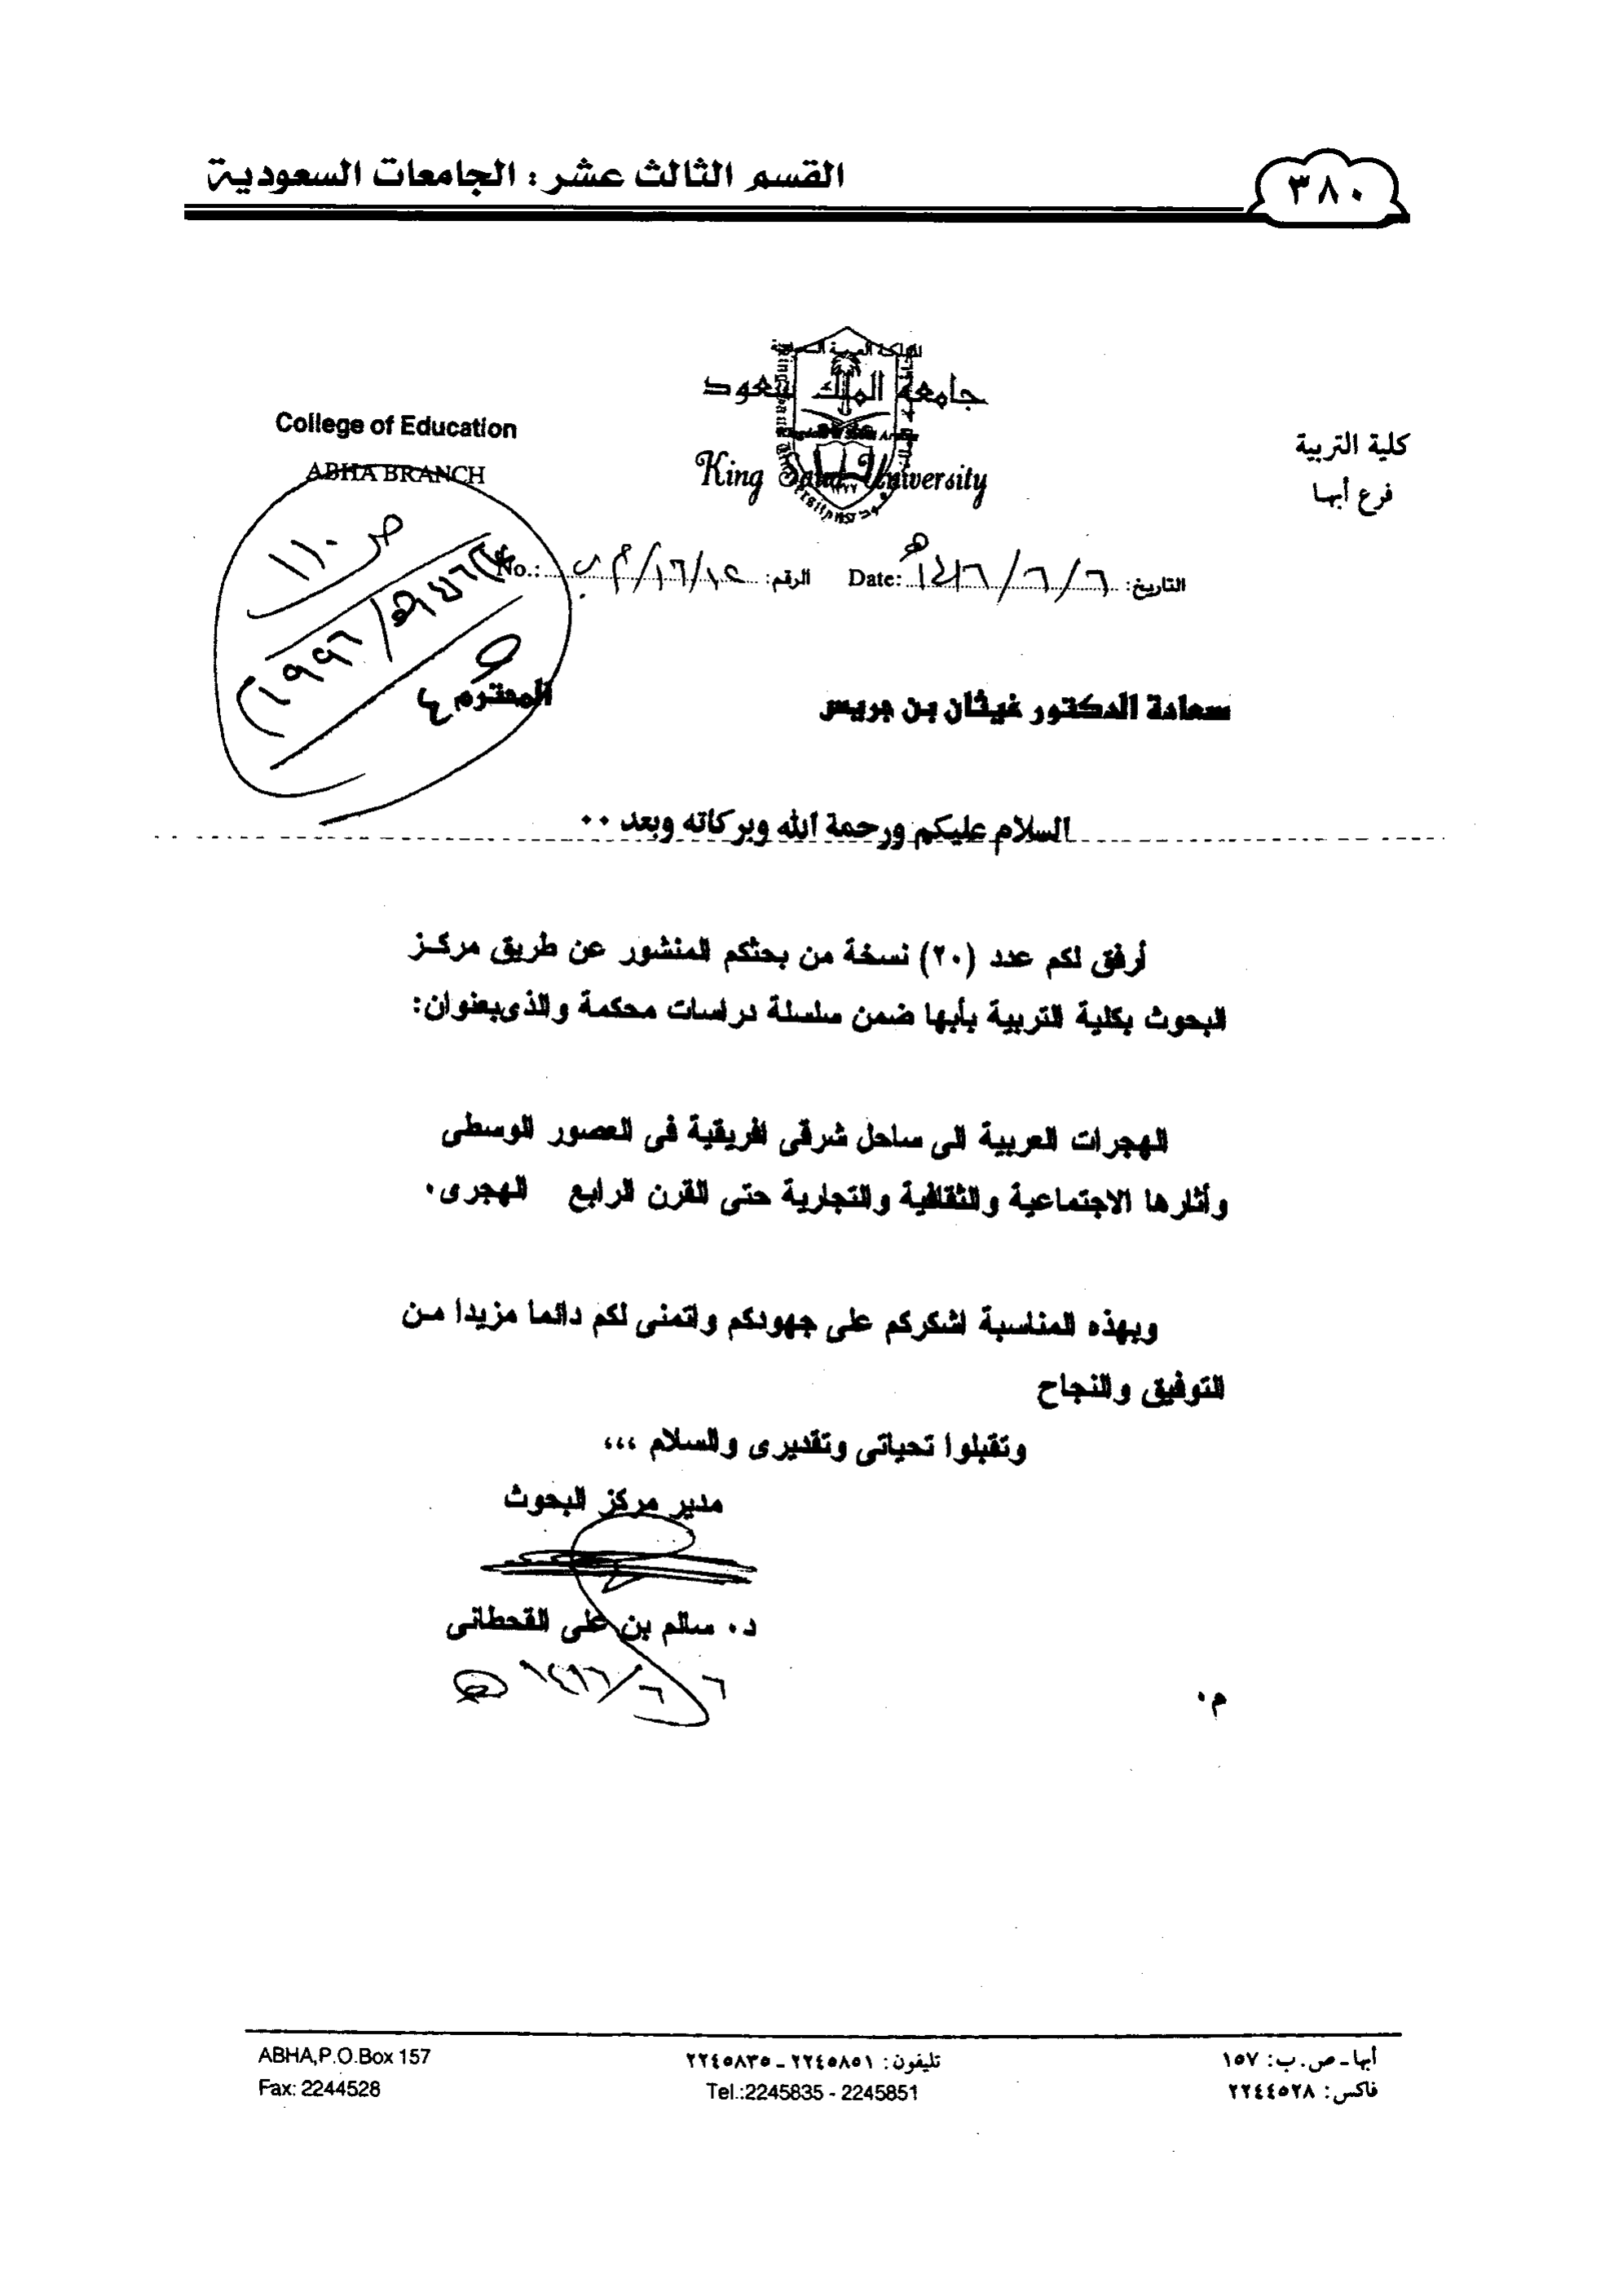 القسم الثالث عشر : الجامعات السعودية
٣٨٠
جامعة الملك سعود
King Saud University
كلية التربية
فرع أبها
College of Education
ABHA BRANCH
التاريخ: ٦/٦/١٤١٦هـ Date:
الرقم: No.:
ص ١١٠
سعادة الدكتور غيثان بن جريس المحترم
السلام عليكم ورحمة الله وبركاته وبعد ٠٠
أرفق لكم عدد (٢٠) نسخة من بحثكم المنشور عن طريق مركز
البحوث بكلية التربية بأبها ضمن سلسلة دراسات محكمة والذي بعنوان:
الهجرات العربية الى ساحل شرقى افريقية فى العصور الوسطى
وأثارها الاجتماعية والثقافية والتجارية حتى القرن الرابع الهجرى٠
وبهذه المناسبة اشكركم على جهودكم واتمنى لكم دائما مزيدا من
التوفيق والنجاح
وتقبلوا تحياتى وتقديرى والسلام ،،،
مدير مركز البحوث
د٠ سالم بن على القحطانى
٦/٦/١٤١٦هـ
م٠
أبها ـ ص.ب: ١٥٧
فاكس: ٢٢٤٤٥٢٨
تليفون: ٢٢٤٥٨٥١ ـ ٢٢٤٥٨٣٥
Tel.:2245835 - 2245851
ABHA,P.O.Box 157
Fax: 2244528